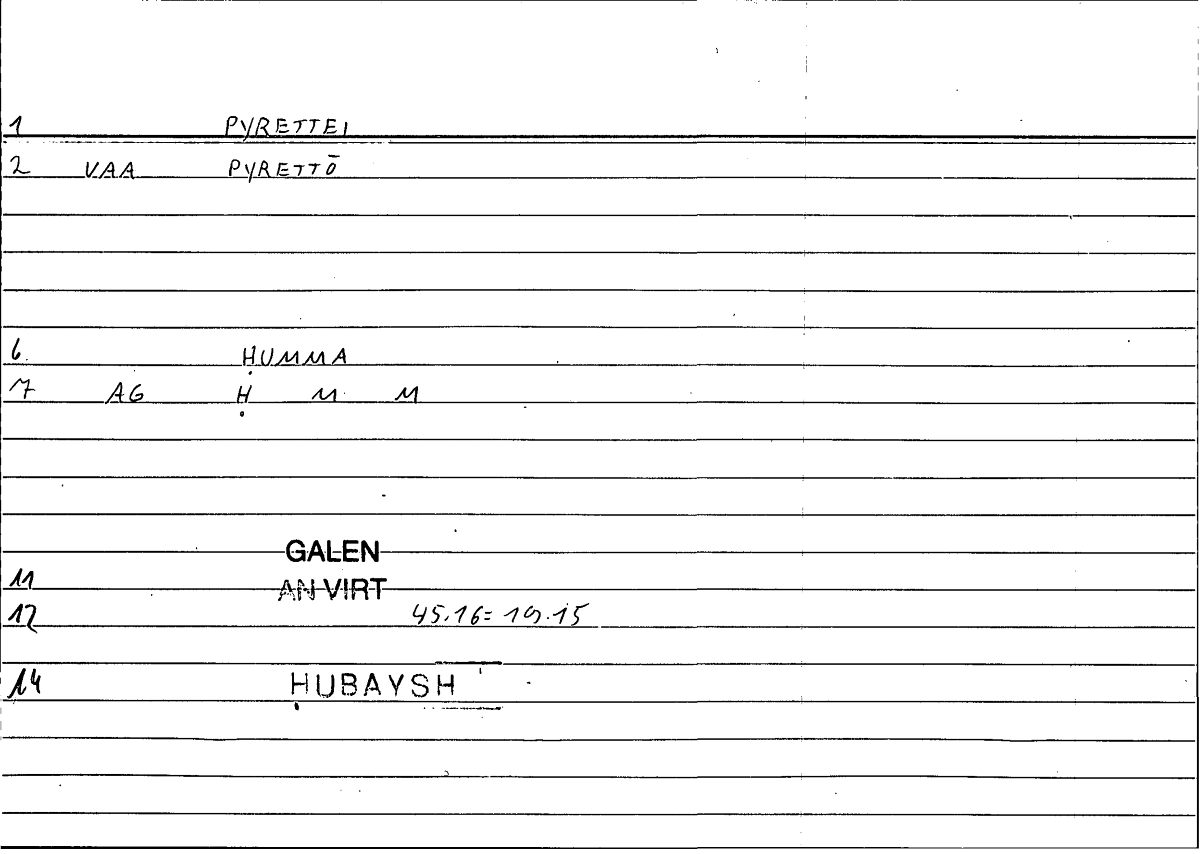 1 PYRETTEI
2 VAA PYRETTŌ
6 ḤUMMA
7 AG Ḥ M M
GALEN
11 AN VIRT
12 45.16= 19.15
14 ḤUBAYSH